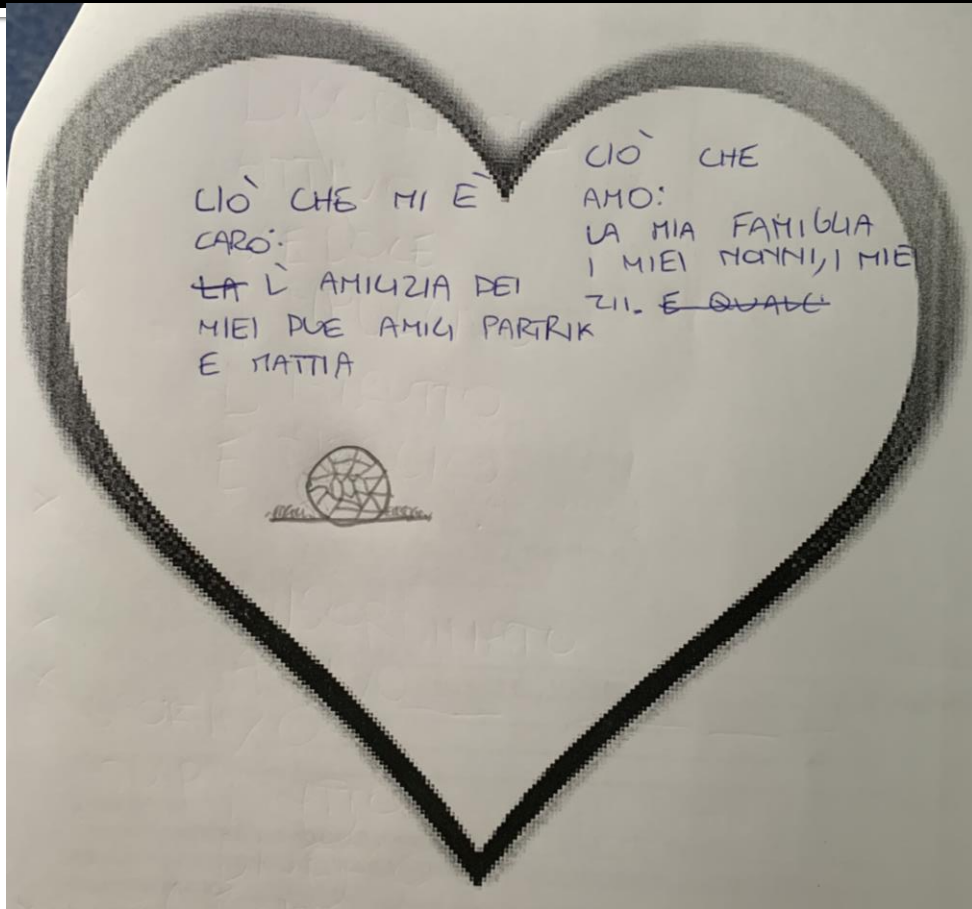 CIÒ CHE MI È
CARO:
LA L̀ AMICIZIA DEI
MIEI DUE AMICI PARTRIK
E MATTIA
CIÒ CHE
AMO:
LA MIA FAMIGLIA
I MIEI NONNI, I MIE
ZII. E QUALC